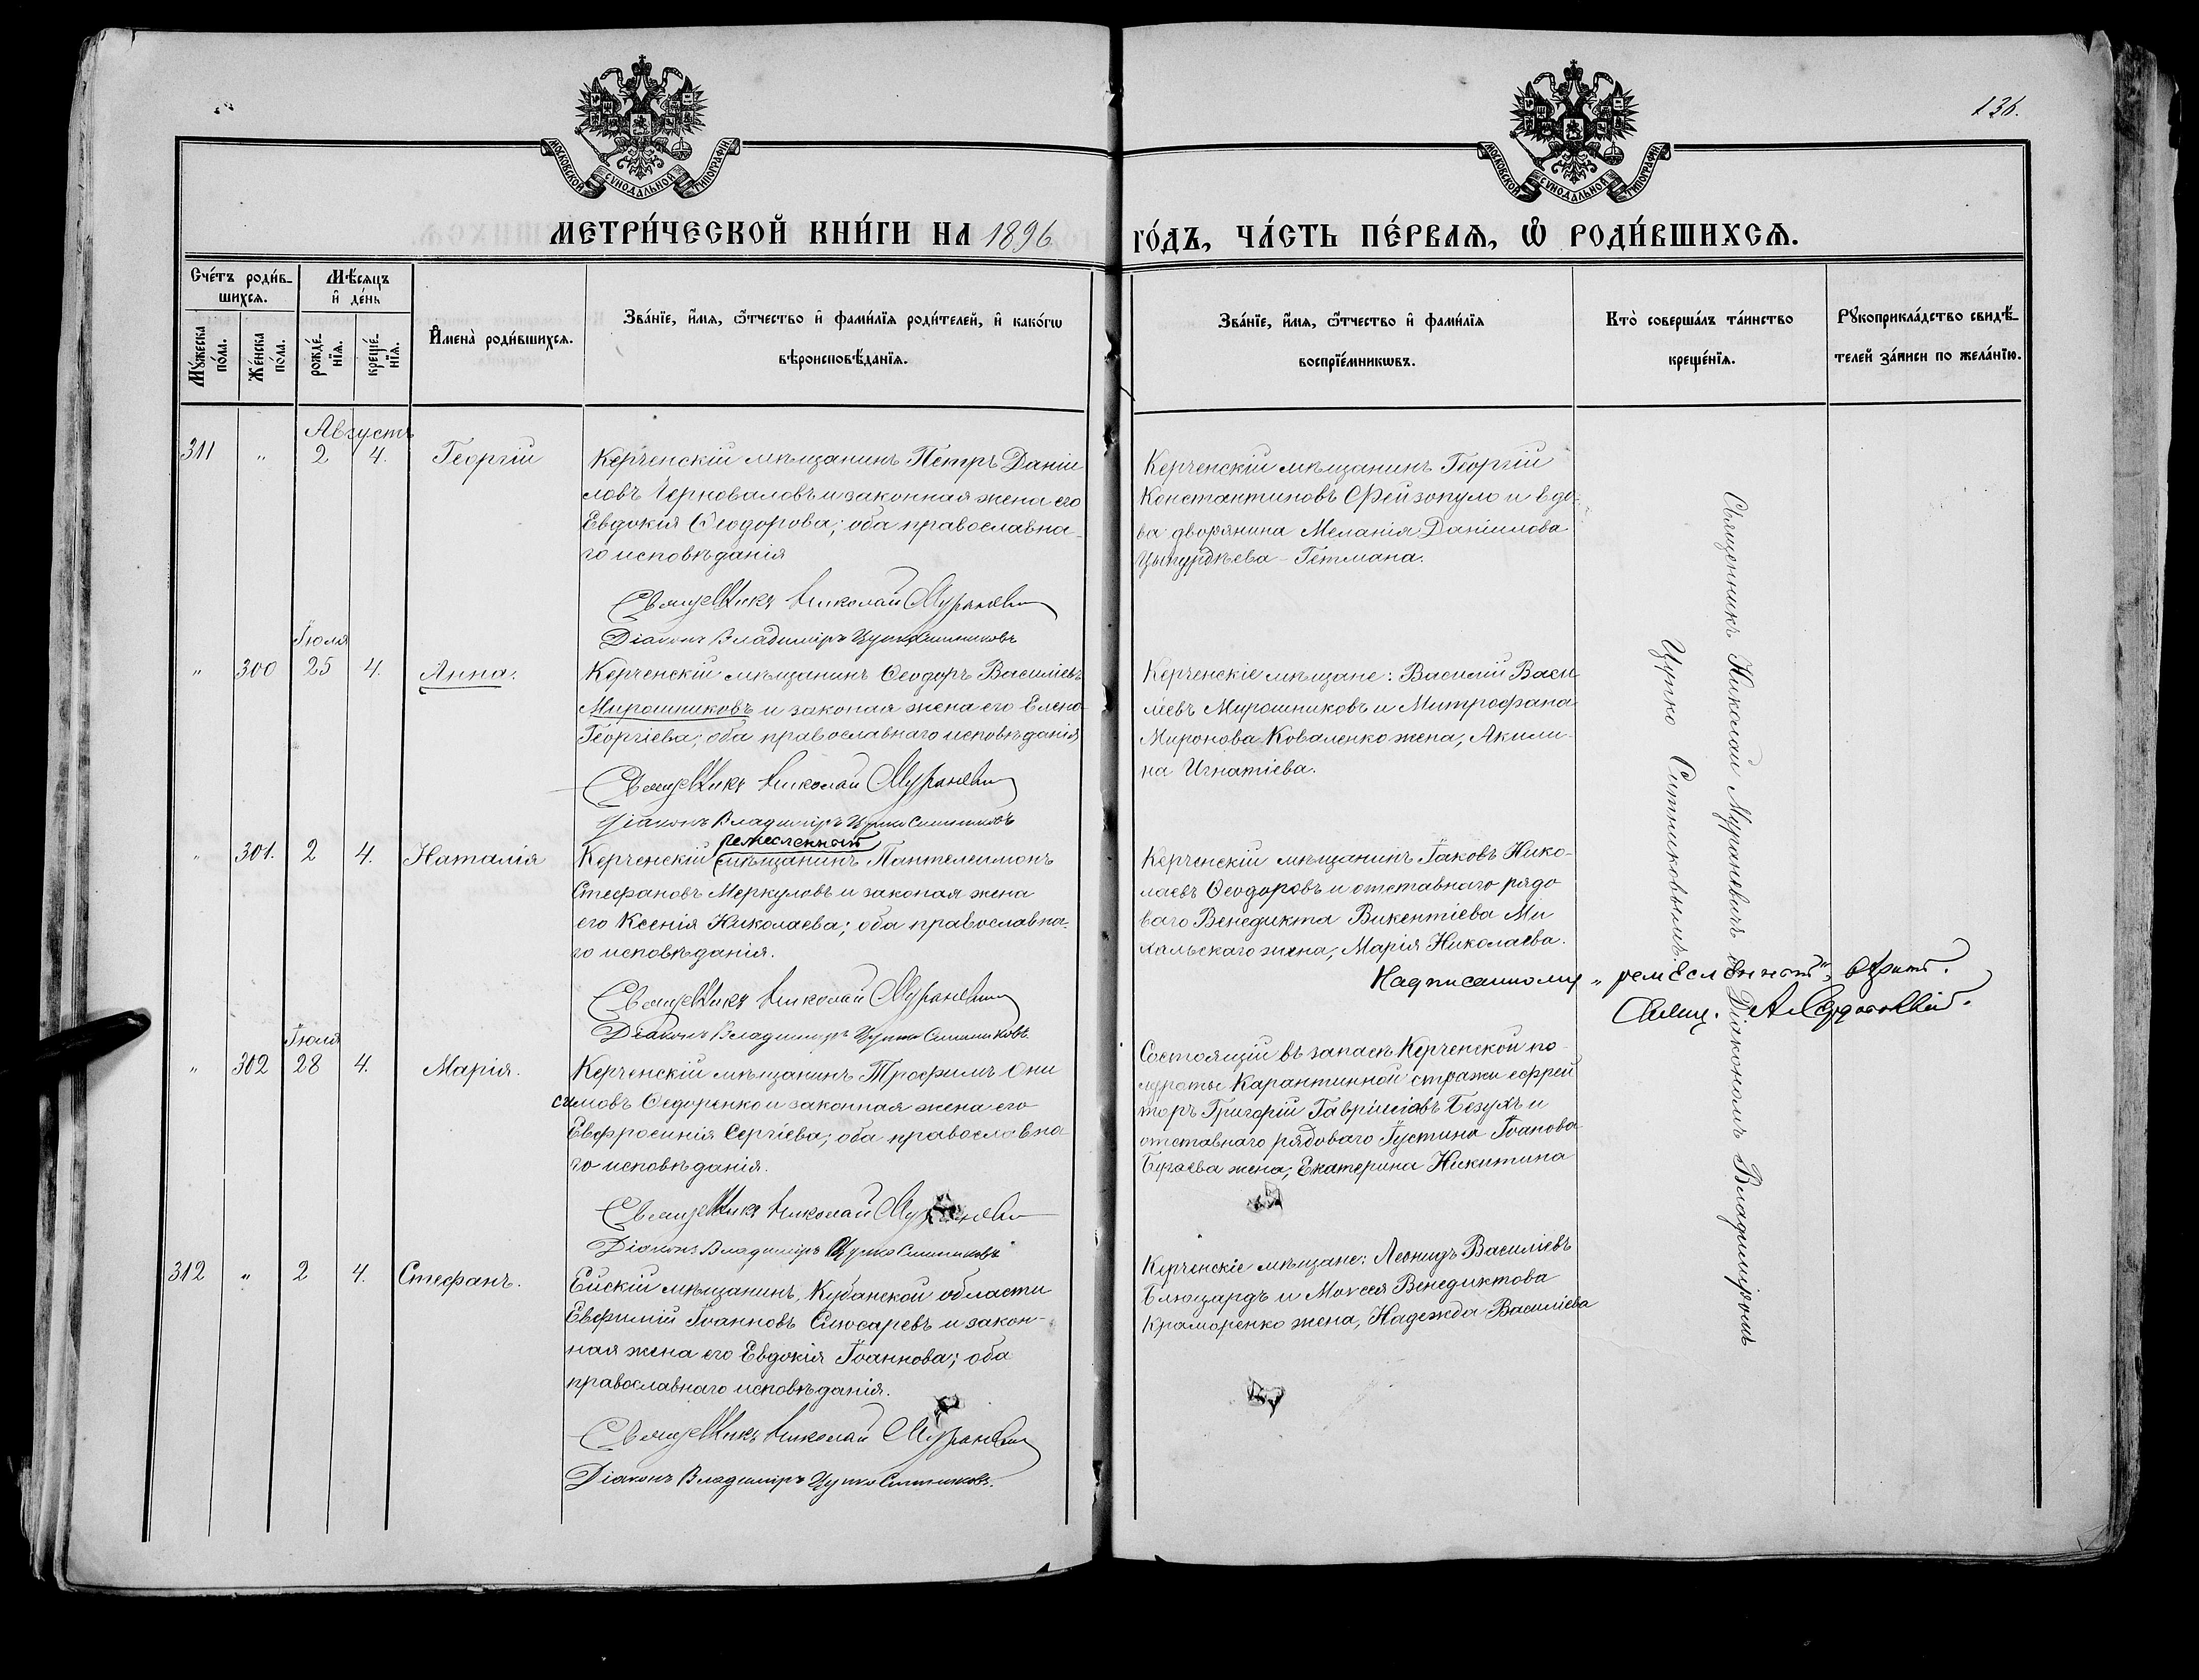 136.
МОСКОВСКОЙ СѴНОДАЛЬНОЙ ТИПОГРАФІИ
МОСКОВСКОЙ СѴНОДАЛЬНОЙ ТИПОГРАФІИ
МЕТРИ́ЧЕСКОЙ КНИ́ГИ НА 1896 ГО́ДЪ, ЧА́СТЬ ПЕ́РВАѦ, Ѡ РОДИ́ВШИХСѦ.
Сче́тъ роди́в-
шихсѧ.
Мꙋ́жеска
по́ла.
Же́нска
по́ла.
Мѣ́сѧцъ
и҆ де́нь
рожде́-
нїѧ.
креще́-
нїѧ.
И҆мена̀ роди́вшихсѧ.
Зва́нїе, и҆́мѧ, ѻ҆́тчество и҆ фами́лїѧ роди́телей, и҆ како́гѡ
вѣроисповѣ́данїѧ.
Зва́нїе, и҆́мѧ, ѻ҆́тчество и҆ фами́лїѧ
воспрїе́мникѡвъ.
Кто̀ соверша́лъ та́инство
креще́нїѧ.
Рꙋкоприкла́дство свидѣ́-
телей за́писи по жела́нїю.
Августъ
311 " 2 4. Георгій
Керченскій мѣщанинъ Петръ Даніи
ловъ Черноваловъ и законная жена его
Евдокія Ѳеодорова; оба православна-
го исповѣданія
Священникъ Николай Мураневич
Діаконъ Владиміръ Цупко Ситниковъ
Керченскій мѣщанинъ Георгій
Константиновъ Фейзопуло и вдо-
ва дворянина Меланія Даніилова
Гетмана.
Іюля
" 300 25 4. Анна.
Керченскій мѣщанинъ Ѳеодоръ Василіевъ
Мирошниковъ и законая жена его Елена
Георгіева; оба православнаго исповѣданія
Священникъ Николай Мураневич
Діаконъ Владиміръ Цупко Ситниковъ
Керченскіе мѣщане: Василій Васи
ліевъ Мирошниковъ и Митрофана
Миронова Коваленко жена, Акили-
на Игнатіева.
" 301. 2 4. Наталія
ремесленный
Керченскій (мѣщанинъ Пантелеимонъ
Стефановъ Меркуловъ и законая жена
его Ксенія Николаева; оба православна-
го исповѣданія.
Священникъ Николай Мураневич
Діаконъ Владиміръ Цупко Ситниковъ
Керченскій мѣщанинъ Іаковъ Нико-
лаевъ Ѳеодоровъ и отставнаго рядо
ваго Венедикта Викентіева Ми
хальскаго жена, Марія Николаева.
Надписанному "ремесленный" вѣрить.
Свящ. А.
Іюля
" 302 28 4. Марія.
Керченскій мѣщанинъ Трофимъ Они
симовъ Ѳедоренко и законная жена его
Евфросинія Сергіева; оба православна
го исповѣданія.
Священникъ Николай Мураневич
Діаконъ Владиміръ Цупко Ситниковъ
Состоящій въ запасѣ Керченской по-
луроты Карантинной стражи ефрей
торъ Григорій Гавріиловъ Безухъ и
отставнаго рядоваго Іустина Іоанова
Бугаева жена, Екатерина Никитина
312 " 2 4. Стефанъ.
Ейскій мѣщанинъ, Кубанской области
Евфимій Іоанновъ Слюсаревъ и закон-
ная жена его Евдокія Іоаннова; оба
православнаго исповѣданія.
Священникъ Николай Мураневич
Діаконъ Владиміръ Цупко Ситниковъ.
Керченскіе мѣщане: Леонидъ Василіевъ
Блюцардъ и Моѵсея Венедиктова
Краморенко жена, Надежда Василіева
Священникъ Николай Мураневичъ съ Діакономъ Владиміромъ
Цупко Ситниковымъ.